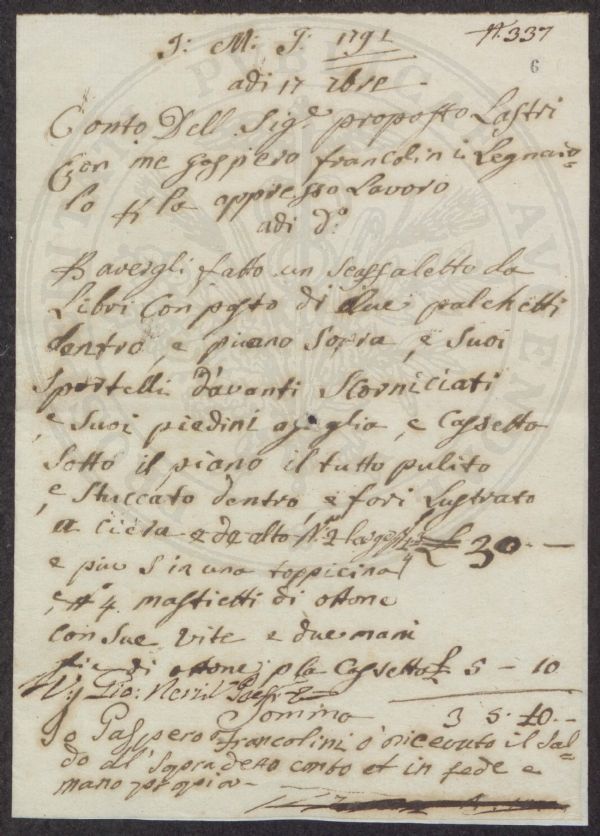 N. 337
6
J: M: J: 1791
adi 17 Xbre
Conto Dell Sig.e proposto Lastri
Con me Gaspero francolini Legnaio=
lo p. la appresso Lavoro
adi d.o
P. avergli fatto un Scaffaletto da
Libri Con posto di due palchetti
dentro, e piano Sopra, e Suoi
Sportelli d'avanti Scorniciati
e Suoi piedini a, e Cassetta
Sotto il piano il tutto pulito
e Stuccato dentro, e fori Lustrato
a Ciera e de alto £ 30. —
e piu S in una toppicina
e, N.o 4. mastietti di ottone
con Sue Vite e due mani
glie di ottone p la Cassetta £ 5 – 10
Gio: Nerii
Somma 3 5. 10. –
Io Gaspero Francolini ò ricevuto il Sal=
do all'Sopradetto conto et in fede e
mano propia